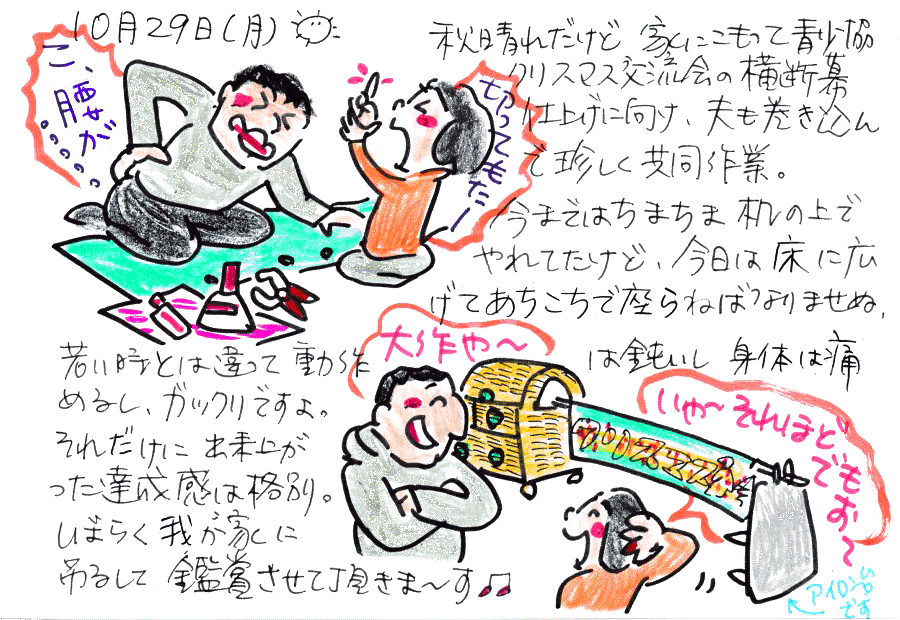 10月29日(月)
こ、腰が
もぅってもたー
秋晴れだけど 家にこもって青少協
クリスマス交流会の横断幕
仕上げに向け、夫も巻き込ん
で珍しく共同作業。
今まではちまちま机の上で
やれてたけど、今日は床に広
げてあちこちで座らねばなりませぬ。
若い時とは違って動作は鈍いし身体は痛
めるし、ガックリですよ。
それだけに出来上が
った達成感は格別。
しばらく我が家に
吊るして鑑賞させて頂きま〜す♫
大作や〜
いや〜それほど
でもお〜
アイロン
です